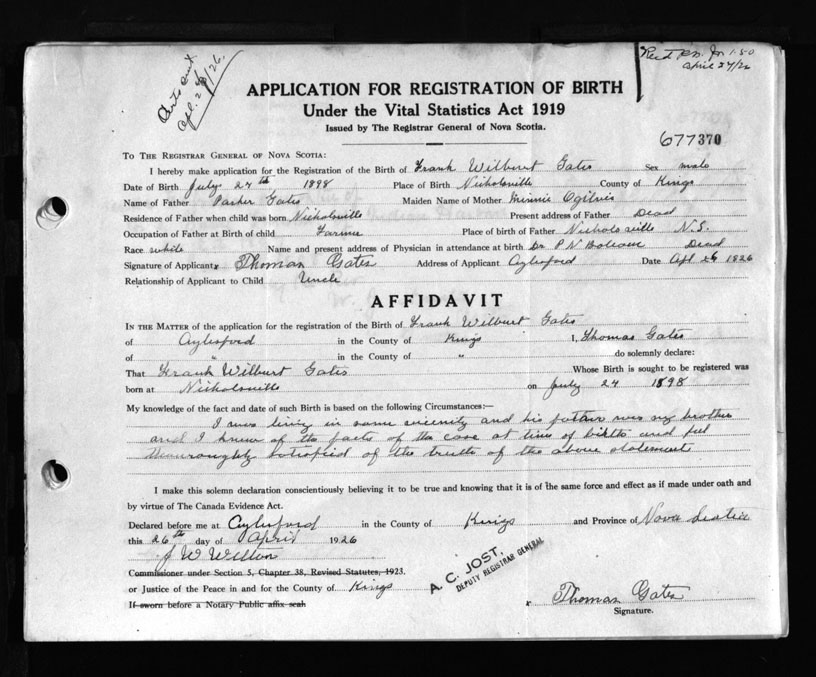 Certs sent.
Apl. 28/26.
Rec'd 1.50
April 27/26
APPLICATION FOR REGISTRATION OF BIRTH
Under the Vital Statistics Act 1919
Issued by The Registrar General of Nova Scotia.
677370
TO THE REGISTRAR GENERAL OF NOVA SCOTIA:
I hereby make application for the Registration of the Birth of Frank Wilburt Gates Sex male
Date of Birth July 24th 1898 Place of Birth Nicholsville County of Kings
Name of Father Parker Gates Maiden Name of Mother Minnie Ogilvie
Residence of Father when child was born Nicholsville Present address of Father Dead
Occupation of Father at Birth of child Farmer Place of birth of Father Nicholsville N.S.
Race white Name and present address of Physician in attendance at birth Dr P N Balcom Dead
Signature of Applicant x Thomas Gates Address of Applicant Aylesford Date Apl 26 1926
Relationship of Applicant to Child Uncle
AFFIDAVIT
IN THE MATTER of the application for the registration of the Birth of Frank Wilburt Gates
of Aylesford in the County of Kings I, Thomas Gates
of " in the County of " do solemnly declare:
That Frank Wilburt Gates Whose Birth is sought to be registered was
born at Nicholsville on July 24 1898
My knowledge of the fact and date of such Birth is based on the following Circumstances:—
I was living in same vicinity and his father was my brother
and I knew of the facts of the case at time of birth and feel
thouroughly satisfied of the truth of the above statement
I make this solemn declaration conscientiously believing it to be true and knowing that it is of the same force and effect as if made under oath and
by virtue of The Canada Evidence Act.
Declared before me at Aylesford in the County of Kings and Province of Nova Scotia
this 26th day of April 1926
J W Wilton
Commissioner under Section 5, Chapter 38, Revised Statutes, 1923.
or Justice of the Peace in and for the County of Kings
If sworn before a Notary Public affix seal
A. C. JOST,
DEPUTY REGISTRAR GENERAL
x Thomas Gates
Signature.